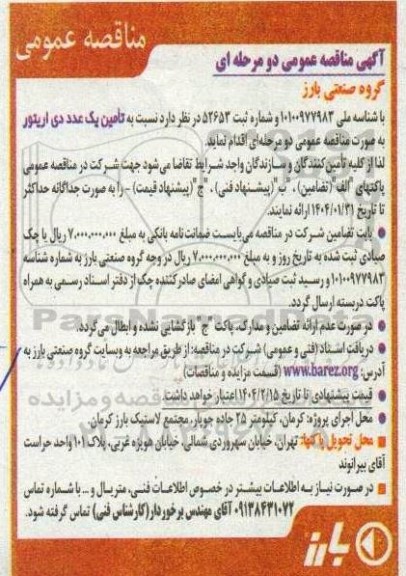 مناقصه عمومی
آگهی مناقصه عمومی دو مرحله ای
گروه صنعتی بارز
با شناسه ملی ۱۰۱۰۰۹۷۷۹۸۳ و شماره ثبت ۵۲۶۵۳ در نظر دارد نسبت به تأمین یک عدد دی اریتور
به صورت مناقصه عمومی دو مرحله‌ای اقدام نماید.
لذا از کلیه تأمین‌کنندگان و سازندگان واجد شرایط تقاضا می‌شود جهت شرکت در مناقصه عمومی
پاکتهای "الف (تضامین)، "ب" (پیشنهاد فنی)، "ج" (پیشنهاد قیمت) – را به صورت جداگانه حداکثر
تا تاریخ ۱۴۰۴/۰۱/۳۱ ارائه نمایند.
● بابت تضامین شرکت در مناقصه می‌بایست ضمانت نامه بانکی به مبلغ ۷.۰۰۰.۰۰۰.۰۰۰ ریال یا چک
صیادی ثبت شده به تاریخ روز و به مبلغ ۷.۰۰۰.۰۰۰.۰۰۰ ریال در وجه گروه صنعتی بارز به شماره شناسه
۱۰۱۰۰۹۷۷۹۸۳ و رسید ثبت صیادی و گواهی امضای صادرکننده چک از دفتر اسناد رسمی به همراه
پاکت دربسته ارسال گردد.
● در صورت عدم ارائه تضامین و مدارک، پاکت "ج" بازگشایی نشده و ابطال می‌گردد.
● دریافت اسناد (فنی و عمومی) شرکت در مناقصه: از طریق مراجعه به وبسایت گروه صنعتی بارز به
آدرس: www.barez.org (قسمت مزایده و مناقصات)
● قیمت پیشنهادی تا تاریخ ۱۴۰۴/۲/۱۵ اعتبار خواهد داشت.
● محل اجرای پروژه: کرمان، کیلومتر ۲۵ جاده جوپار، مجتمع لاستیک بارز کرمان.
■ محل تحویل پاکتها: تهران، خیابان سهروردی شمالی، خیابان هویزه غربی، پلاک ۱۰۱ واحد حراست
آقای بیرانوند
■ در صورت نیاز به اطلاعات بیشتر در خصوص اطلاعات فنی، متریال و ... با شماره تماس
۰۹۱۳۸۴۳۱۰۷۲ آقای مهندس برخوردار (کارشناس فنی) تماس گرفته شود.
بارز
ParsNamadData